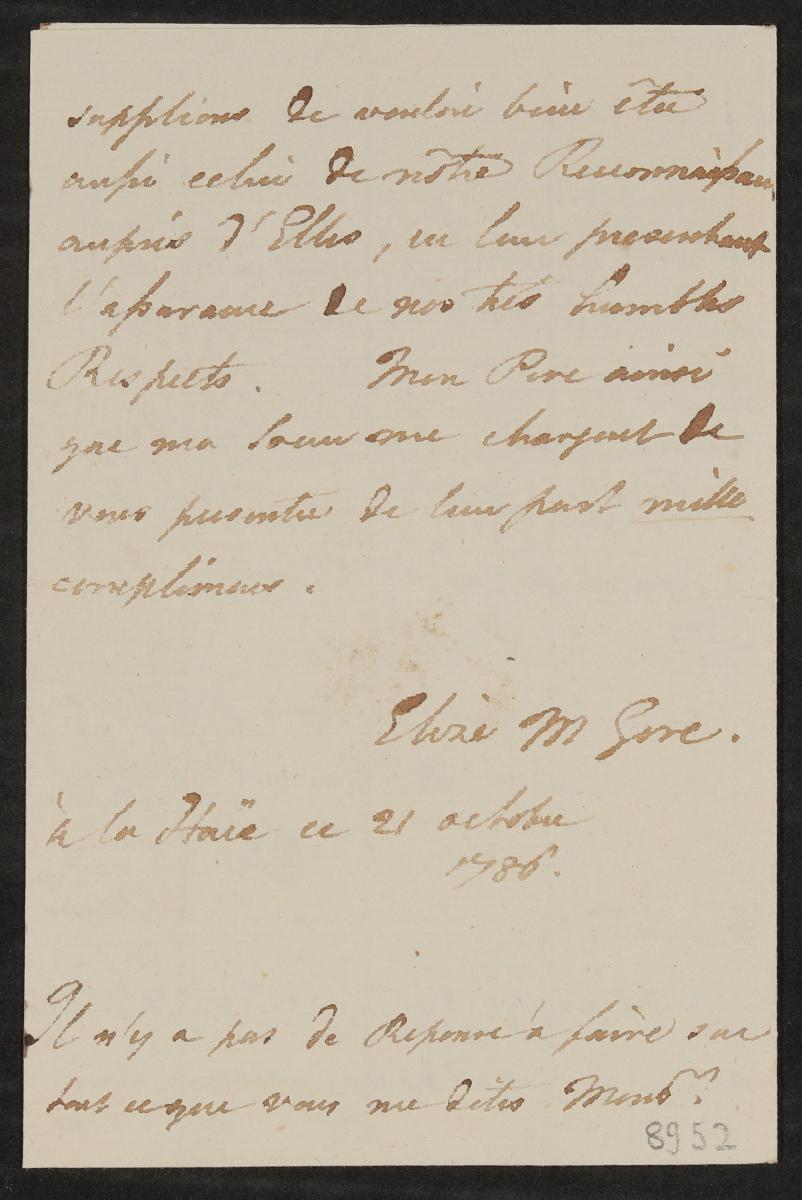 supplions de vouloir bien être
aussi celui de nôtre Reconnaissan
auprès d'Elles, en leur presentant
l'assurance de nos très humbles
Respects. Mon Pere ainsi
que ma Soeur me chargent de
vous presenter de leur part mille
complimens.
Elize M Gore.
à la Haïe ce 21 octobre
1786.
Il n'y a pas de Reponse à faire sur
tout ce que vous me dites Monsr
8952